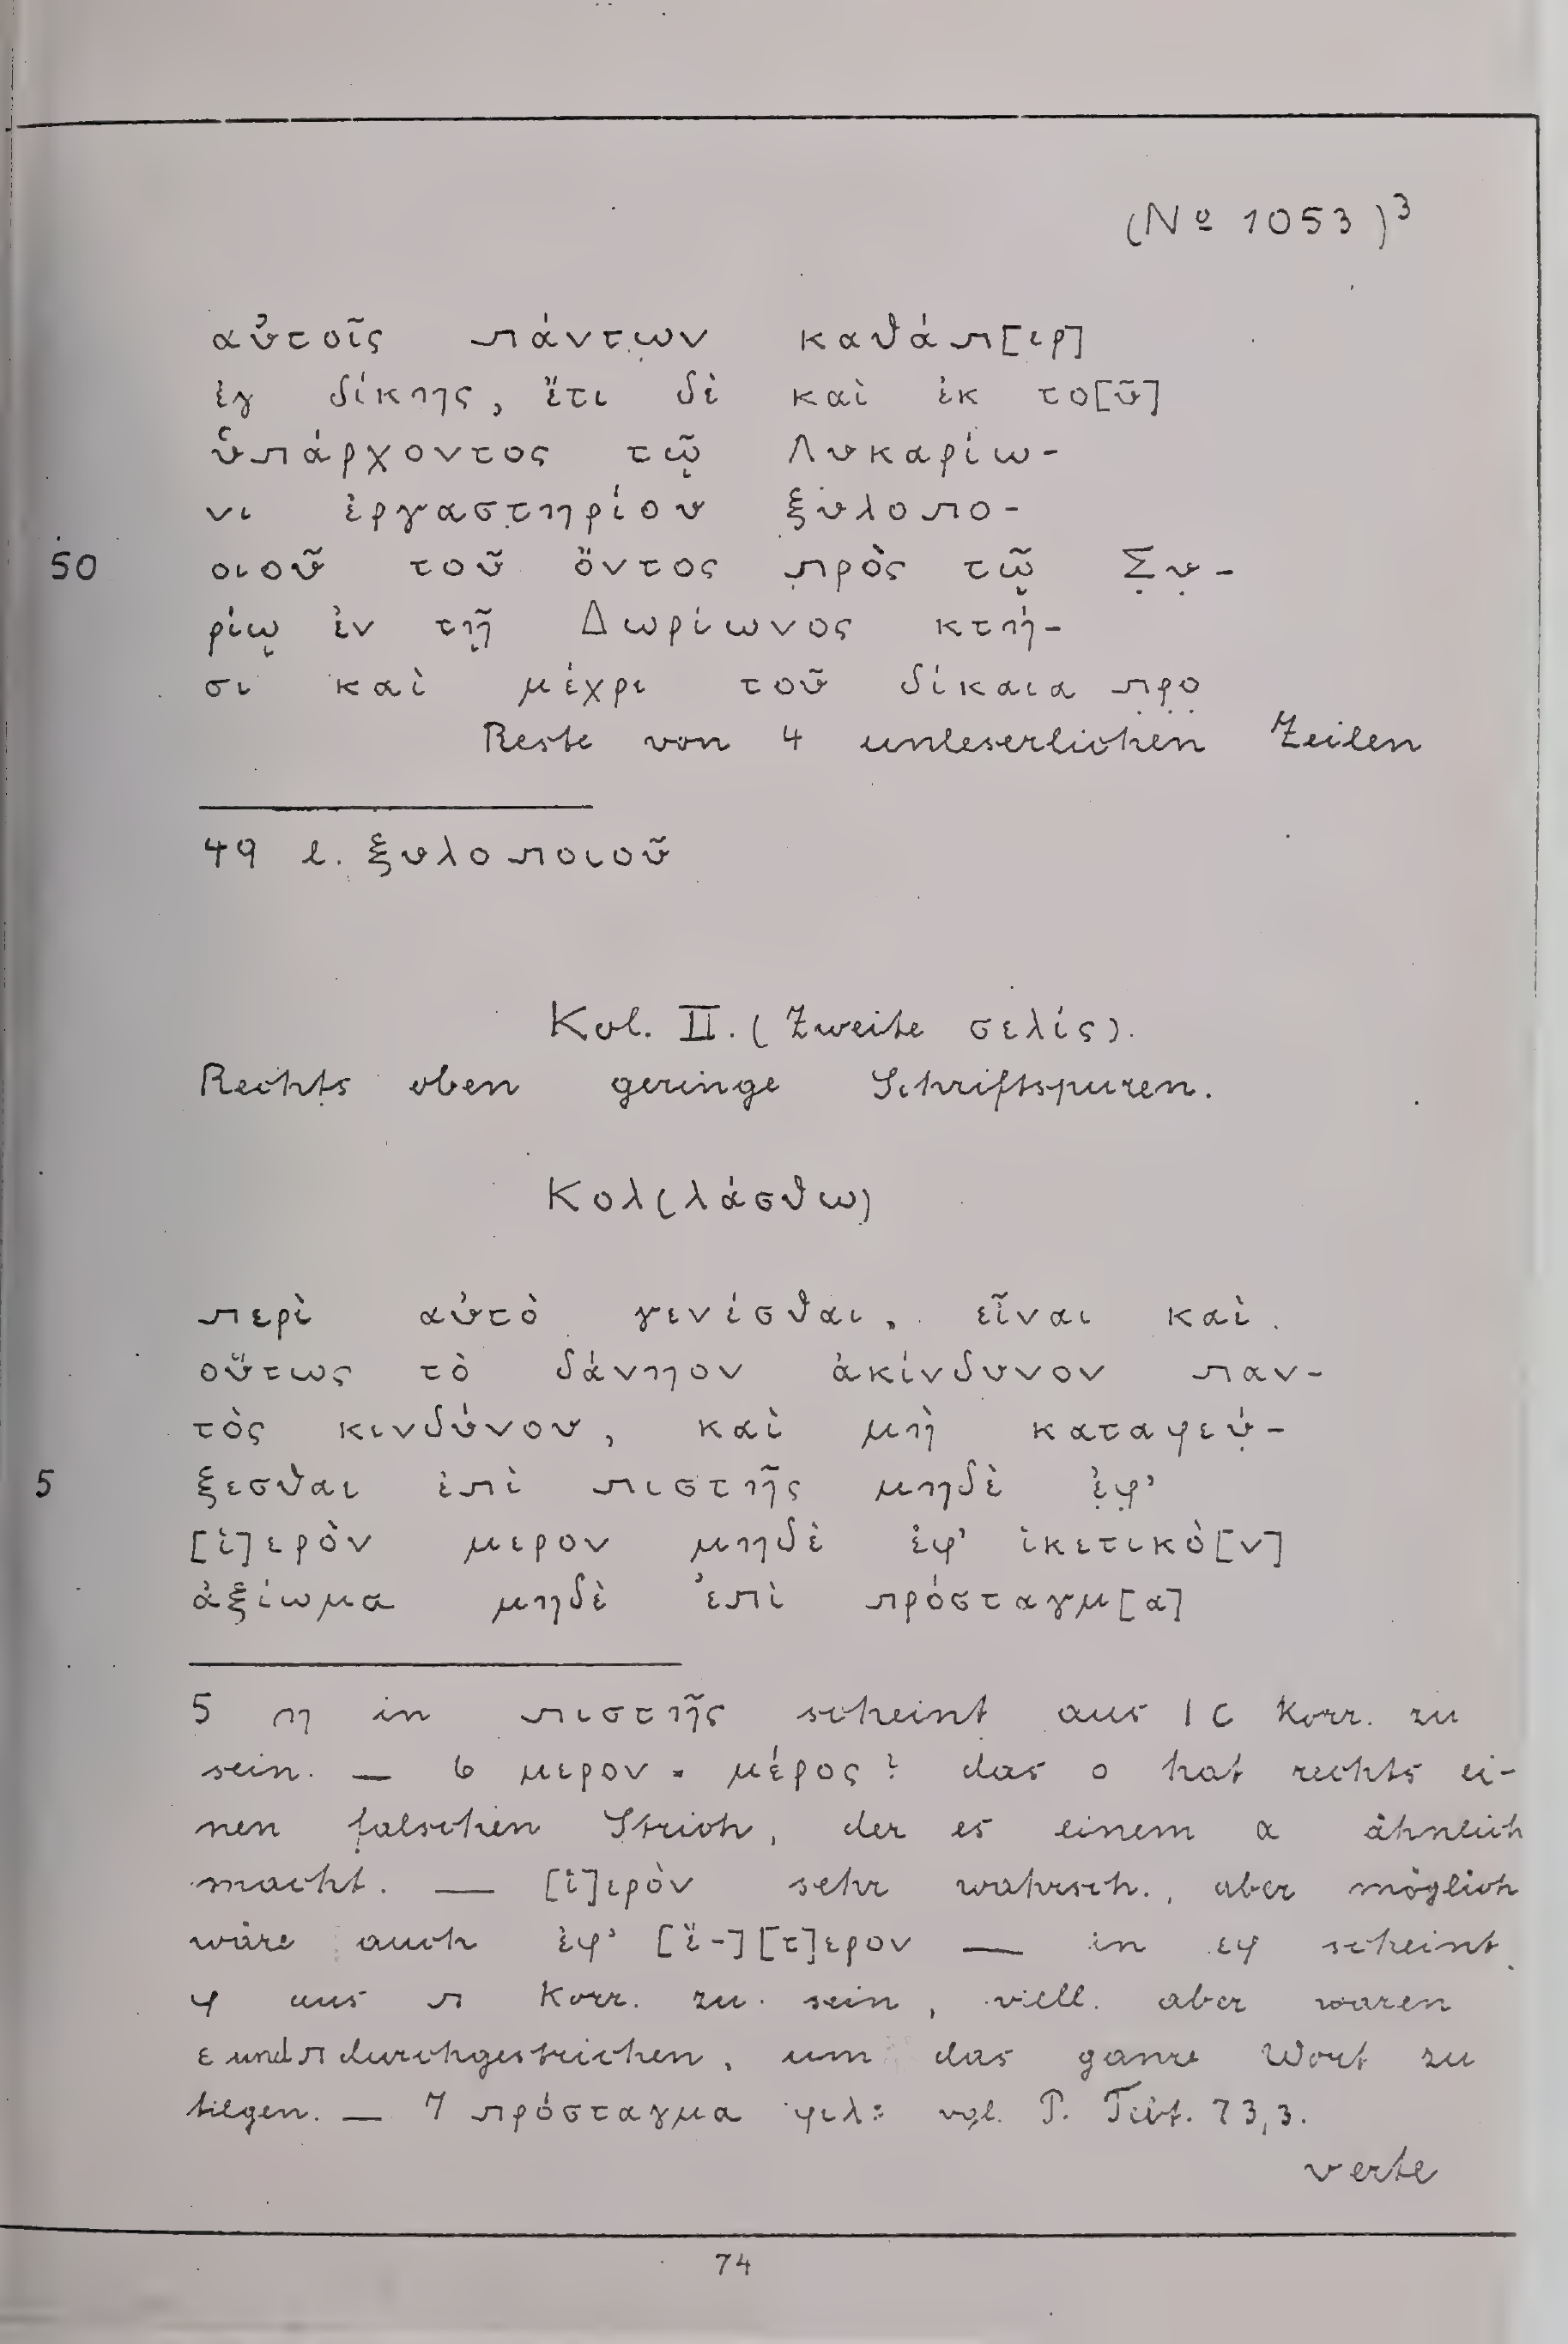 (Nº 1053)³
αὐτοῖς πάντων καθάπ[ερ]
ἐγ δίκης, ἔτι δὲ καὶ ἐκ το[ῦ]
ὑπάρχοντος τῷ Λυκαρίω-
νι ἐργαστηρίου ξυλοπο-
50 οιοῦ τοῦ ὄντος π̣ρὸς τῷ Σ̣υ̣-
ρίῳ ἐν τῇ Δωρίωνος κτή-
σι καὶ μέχρι τοῦ δίκαια π̣ρ̣ο̣
Reste von 4 unleserlichen Zeilen
49 l. ξυλοποιοῦ
Kol. II. (Zweite σελίς).
Rechts oben geringe Schriftspuren.
Κολ(λάσθω)
περὶ αὐτὸ γενέσθαι, εἶναι καὶ
οὕτως τὸ δάνηον ἀκίνδυνον παν-
τὸς κινδύνου, καὶ μὴ καταφεύ̣-
5 ξεσθαι ἐπὶ πιστῆς μηδὲ ἐ̣φ̣'
[ἱ]ερὸν μερον μηδὲ ἐφ' ἱκετικὸ[ν]
ἀξίωμα μηδὲ ἐπὶ πρόσταγμ[α]
5 η in πιστῆς scheint aus ΙC Korr. zu
sein. — 6 μερον = μέρος? das ο hat rechts ei-
nen falschen Strich, der es einem α ähnlich
macht. — [ἱ]ερὸν sehr wahrsch., aber möglich
wäre auch ἐφ' [ἕ-][τ]ερον — in εφ scheint
φ aus π Korr. zu sein, viell. aber waren
ε und π durchgestrichen, um das ganze Wort zu
tilgen. — 7 πρόσταγμα φιλ: vgl. P. Tebt. 73,3.
verte
74